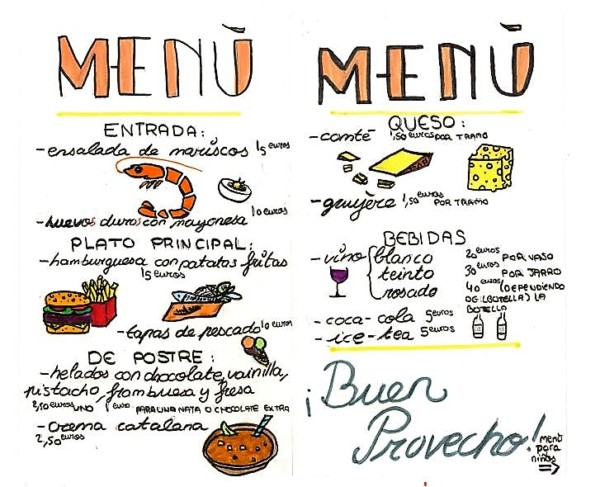 MENÙ
ENTRADA:
-ensalada de mariscos 15 euros
-huevos duros con mayonesa 10 euros
PLATO PRINCIPAL:
-hamburguesa con patatas fritas
15 euros
-tapas de pescado 10 euros
DE POSTRE:
-helados con chocolate, vainilla,
pistacho, frambuesa y fresa
2,50 euros UNO 1 euro PARA UNA NATA O CHOCOLATE EXTRA
-crema catalana
2,50 euros
MENÙ
QUESO:
-comté 1,50 euros POR TRAMO
-gruyère 1,50 euros POR TRAMO
BEBIDAS
-vino blanco 20 euros POR VASO
tinto 30 euros POR JARRO
rosado 40 euros (DEPENDIENDO
DE (BOTELLA) LA
BOTELLA
-coca-cola 5 euros
-ice-tea 5 euros
¡Buen
Provecho!
menú
para
niños